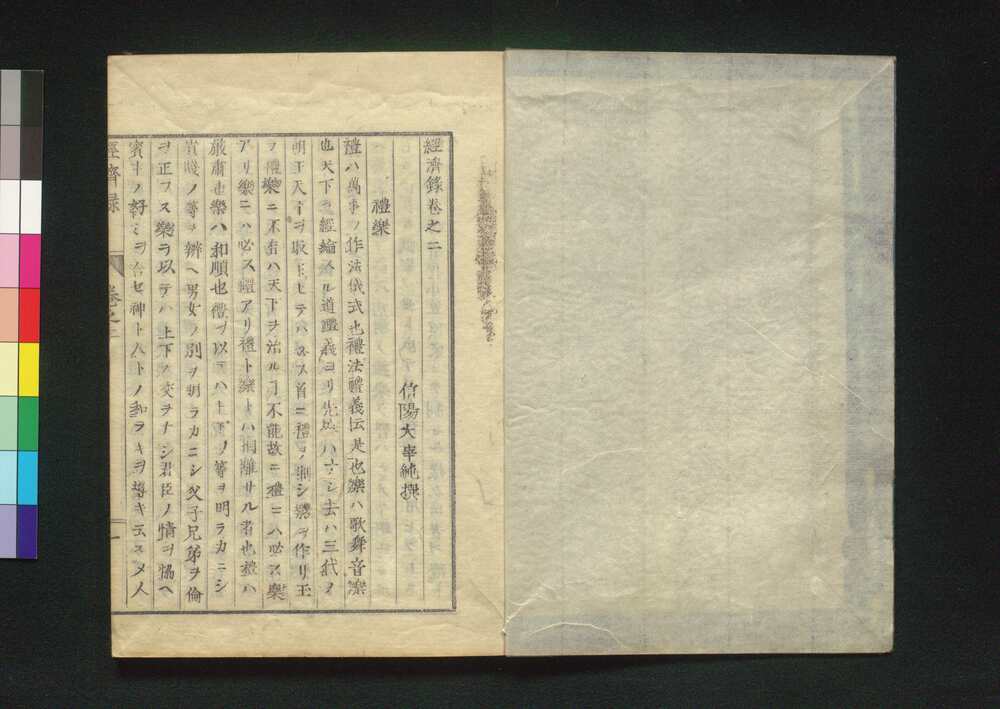 經濟錄卷之二
信陽太宰純撰
禮樂
禮ハ萬事ノ作法儀式也禮法禮義伝是也樂ハ歌舞音樂
也天下ヲ經綸スル道禮義ヨリ先ナルハナシ去ハ三代ノ
明王天下ヲ取玉ヒテハ首ニ禮ヲ制シ樂ヲ作リ玉
フ禮樂ニ不有ハ天下ヲ治ルヿ不能故ニ禮ニハ必ス樂
アリ樂ニハ必ス禮アリ禮ト樂トハ相離サル者也禮ハ
嚴肅也樂ハ和順也禮ヲ以テハ上下ノ等ヲ明ラカニシ
貴賤ノ等ヲ辨ヘ男女ノ別ヲ明ラカニシ父子兄弟ヲ倫
ヲ正フス樂ヲ以テハ上下ノ交ヲナシ君臣ノ情ヲ協ヘ
賓主ノ好ミヲ合セ神ト人トノ和ラキヲ導キ
經濟録
卷之二
一